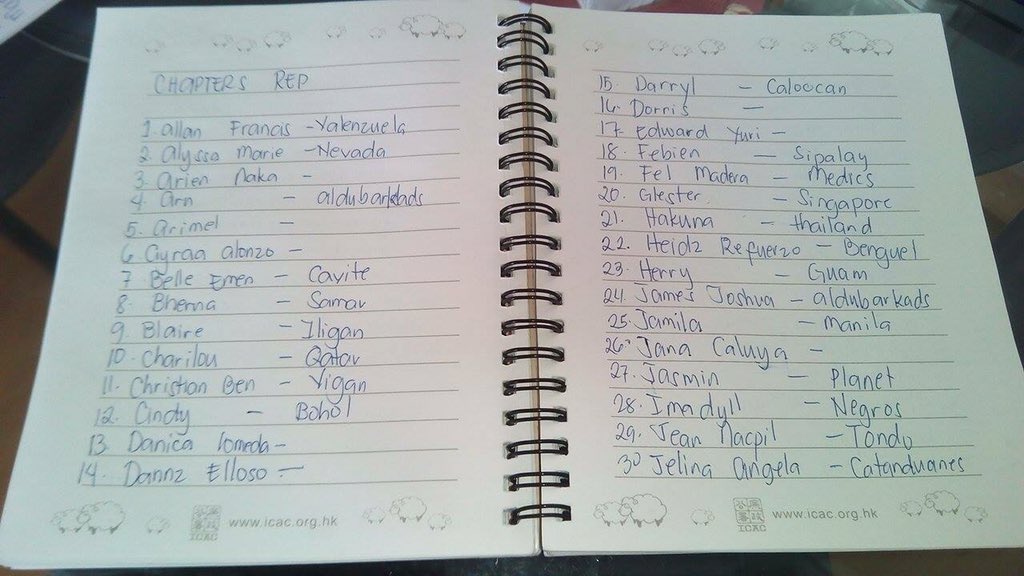 CHAPTERS REP
1. Allan Francis - Valenzuela
2. Alyssa Marie - Nevada
3. Arien Naka -
4. Arn - aldubarkads
5. Arimel -
6. Ayraa Alonzo -
7. Belle Emen - Cavite
8. Bhenna - Samar
9. Blaire - Iligan
10. Charilou - Qatar
11. Christian Ben - Vigan
12. Cindy - Bohol
13. Danica Lomeda -
14. Dannz Elloso -
www.icac.org.hk
ICAC
15. Darryl - Caloocan
16. Dorris -
17. Edward Yuri -
18. Febien - Sipalay
19. Fel Madera - Medics
20. Glester - Singapore
21. Hakuna - thailand
22. Heidz Refuerzo - Benguet
23. Herry - Guam
24. James Joshua - aldubarkads
25. Jamila - manila
26. Jana Caluya -
27. Jasmin - Planet
28. Imadyll - Negros
29. Jean Macpil - Tondo
30 Jelina Angela - Catanduanes
www.icac.org.hk
ICAC